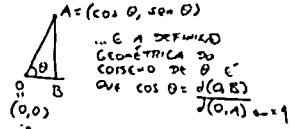 A = (cos θ, sen θ)
... E A DEFINIÇÃO
GEOMÉTRICA DO
COSSENO DE θ É
QUE cos θ = d(O,B)
d(O,A)
θ
O
B
(0,0)